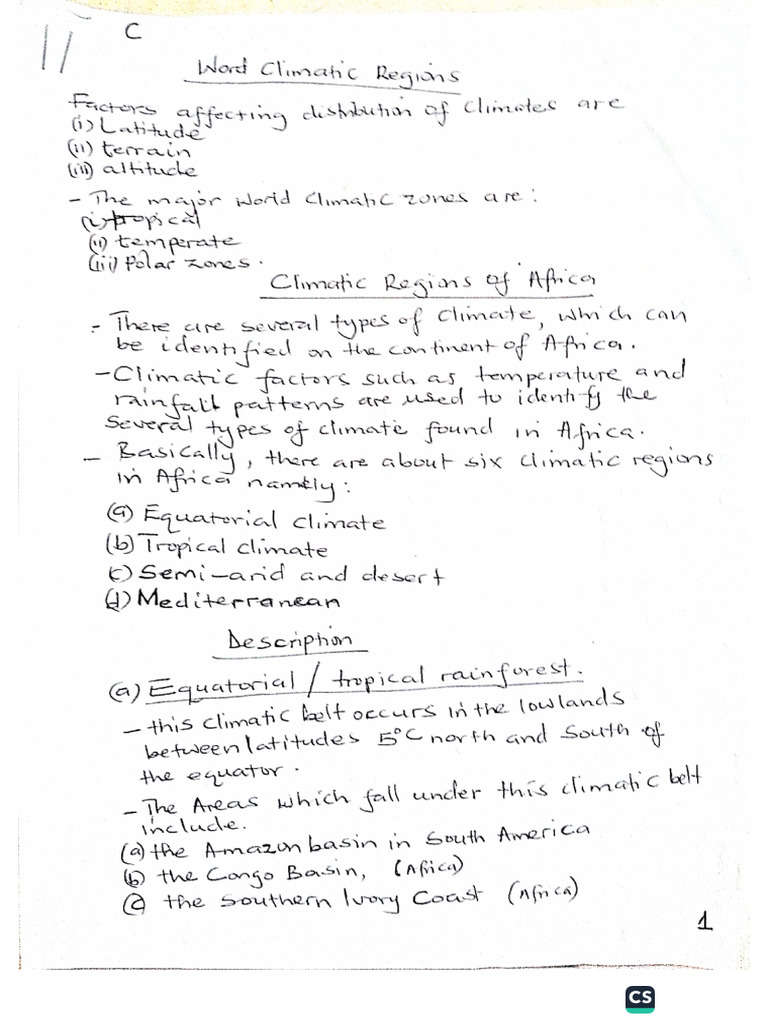 11
C
Word Climatic Regions
Factors affecting distribution of Climates are
(i) Latitude
(ii) terrain
(iii) altitude
- The major World Climatic zones are:
(i) tropical
(ii) temperate
(iii) Polar zones.
Climatic Regions of Africa
- There are several types of Climate, which can
be identified on the continent of Africa.
- Climatic factors such as temperature and
rainfall patterns are used to identify the
several types of climate found in Africa.
- Basically, there are about six climatic regions
in Africa namely:
(a) Equatorial climate
(b) Tropical climate
(c) Semi-arid and desert
(d) Mediterranean
Description
(a) Equatorial / tropical rainforest.
- this climatic belt occurs in the lowlands
between latitudes 5°C north and South of
the equator.
- The Areas which fall under this climatic belt
include.
(a) the Amazon basin in South America
(b) the Congo Basin, (Africa)
(c) the Southern Ivory Coast (Africa)
1
CS